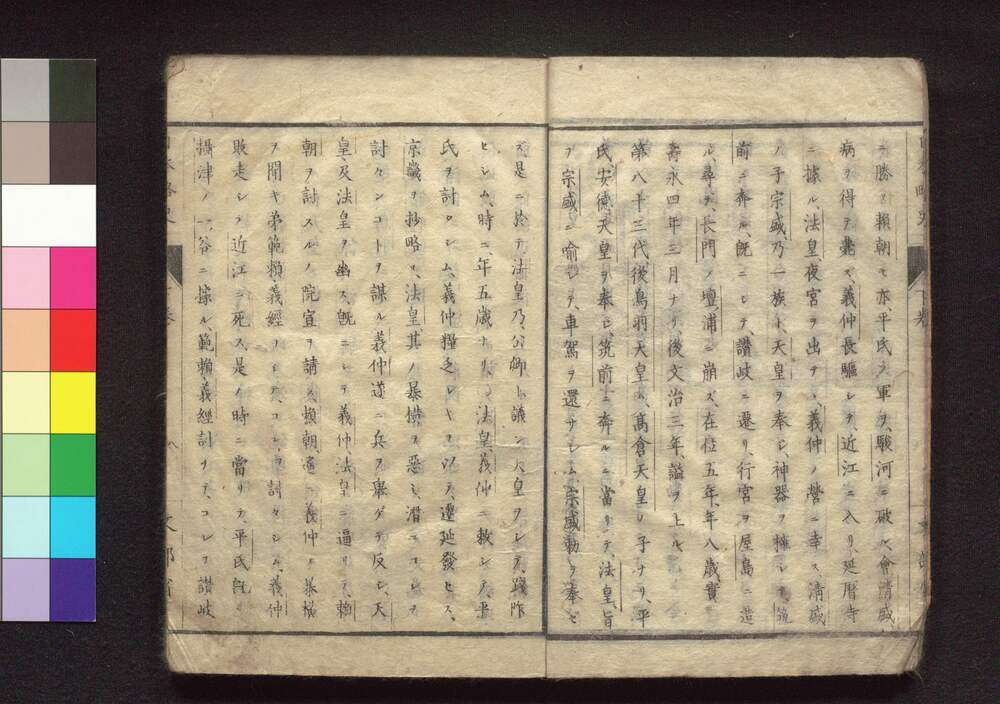 ニ勝ツ、賴朝モ亦平氏ノ軍ヲ駿河ニ破ル、會淸盛
病ヲ得テ薨ズ、義仲長驅シテ、近江ニ入リ、延曆寺
ニ據ル、法皇夜宮ヲ出テヽ、義仲ノ營ニ幸ス、淸盛
ノ子宗盛乃一族ト、天皇ヲ奉ジ、神器ヲ擁シテ、筑
前ニ奔ル、旣ニシテ、讚岐ニ遷リ、行宮ヲ屋島ニ造
ル、尋テ長門ノ壇浦ニ崩ズ、在位五年、年八歲實
壽永四年三月ナリ、後文治三年、謚ヲ上ル
第八十三代後鳥羽天皇ハ、高倉天皇ノ子ナリ、平
氏、安德天皇ヲ奉ジ、筑前ニ奔ルニ當リテ、法皇旨
ヲ宗盛ニ喻シテ、車駕ヲ還サシム、宗盛勅ヲ奉セ
ズ、是ニ於テ法皇乃公卿ト議シ天皇ヲシテ、踐阼
セシム、時ニ年五歲ナリ、法皇、義仲ニ敕シテ、平
氏ヲ討タシム、義仲糧乏シキヲ以テ、遷延發セス、
京畿ヲ抄略ス、法皇、其ノ暴橫ヲ惡ミ、潛ニコレヲ
討タンコトヲ謀ル、義仲遂ニ兵ヲ舉ゲテ反シ、天
皇及法皇ヲ幽ス、旣ニシテ義仲、法皇ニ逼リテ、賴
朝ヲ討スルノ院宣ヲ請フ、賴朝適義仲ノ暴橫
ヲ聞キ弟範賴、義經ヲシテ、コレヲ討タシム、義仲
敗走シテ近江ニ死ス、是ノ時ニ當リテ、平氏旣ニ
攝津ノ一谷ニ據ル、範賴義經討ツテ、コレヲ讚岐